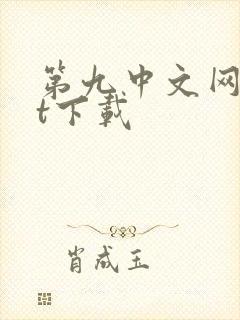 第九中文网
t下载
肖成玉